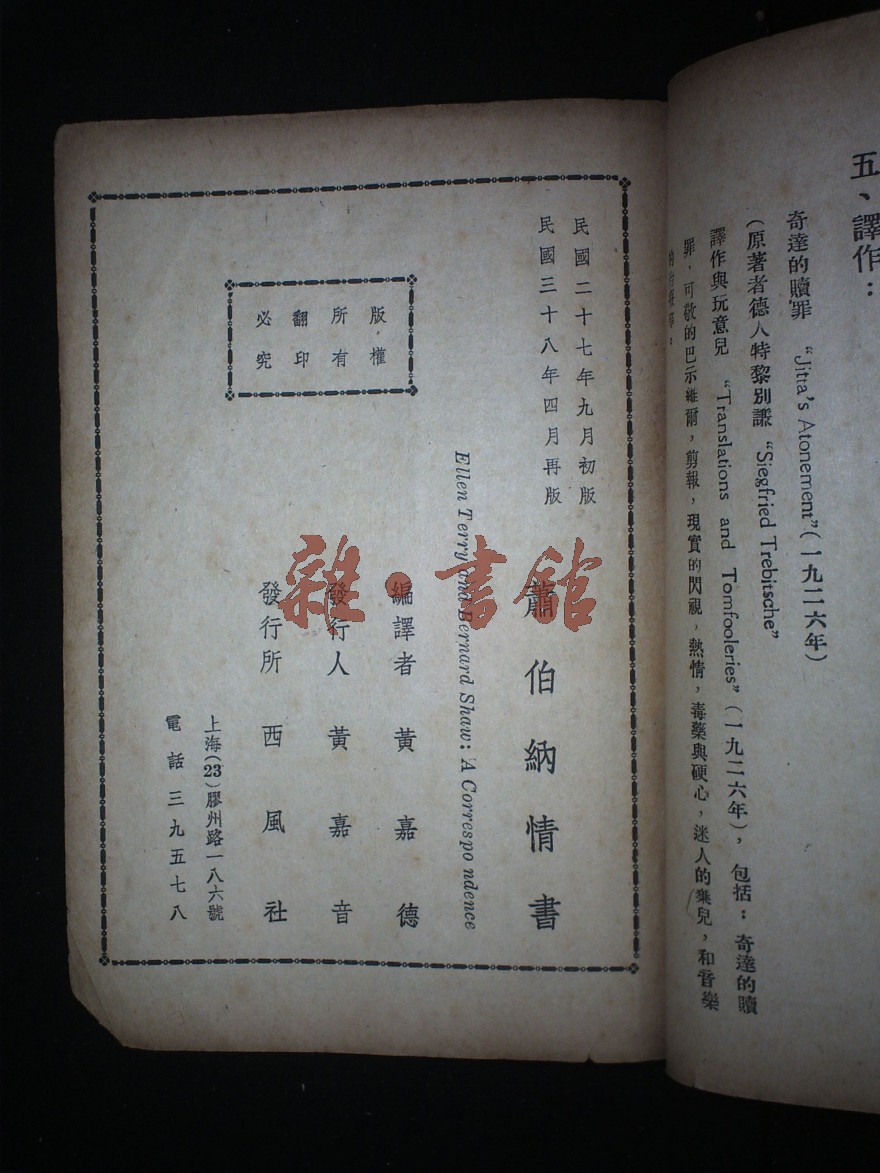 五、譯作：
奇達的贖罪 “Jitta's Atonement”（一九二六年）
（原著者德人特黎別謙 “Siegfried Trebitsche”
譯作與玩意兒 “Translations and Tomfooleries”（一九二六年），包括：奇達的贖
罪，可敬的巴示維爾，剪報，現實的閃視，熱情，毒藥與硬心，迷人的棄兒，和音樂
民國二十七年九月初版
民國三十八年四月再版
蕭伯納情書
Ellen Terry and Bernard Shaw: A Correspo ndence
編譯者 黃嘉德
發行人 黃嘉音
發行所 西風社
上海(23)膠州路一八六號
電話三九五七八
版權
所有
翻印
必究
雜·書館